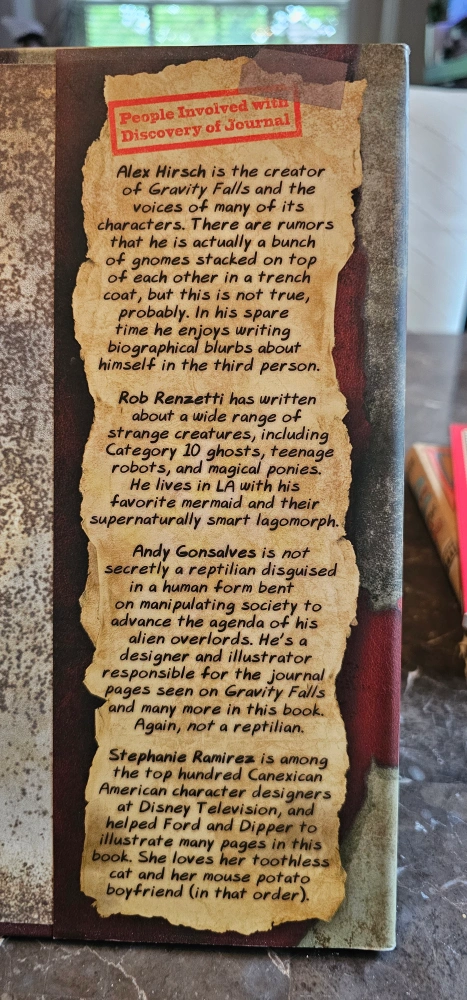 People Involved with
Discovery of Journal
Alex Hirsch is the creator
of Gravity Falls and the
voices of many of its
characters. There are rumors
that he is actually a bunch
of gnomes stacked on top
of each other in a trench
coat, but this is not true,
probably. In his spare
time he enjoys writing
biographical blurbs about
himself in the third person.
Rob Renzetti has written
about a wide range of
strange creatures, including
Category 10 ghosts, teenage
robots, and magical ponies.
He lives in LA with his
favorite mermaid and their
supernaturally smart lagomorph.
Andy Gonsalves is not
secretly a reptilian disguised
in a human form bent
on manipulating society to
advance the agenda of his
alien overlords. He's a
designer and illustrator
responsible for the journal
pages seen on Gravity Falls
and many more in this book.
Again, not a reptilian.
Stephanie Ramirez is among
the top hundred Canexican
American character designers
at Disney Television, and
helped Ford and Dipper to
illustrate many pages in this
book. She loves her toothless
cat and her mouse potato
boyfriend (in that order).